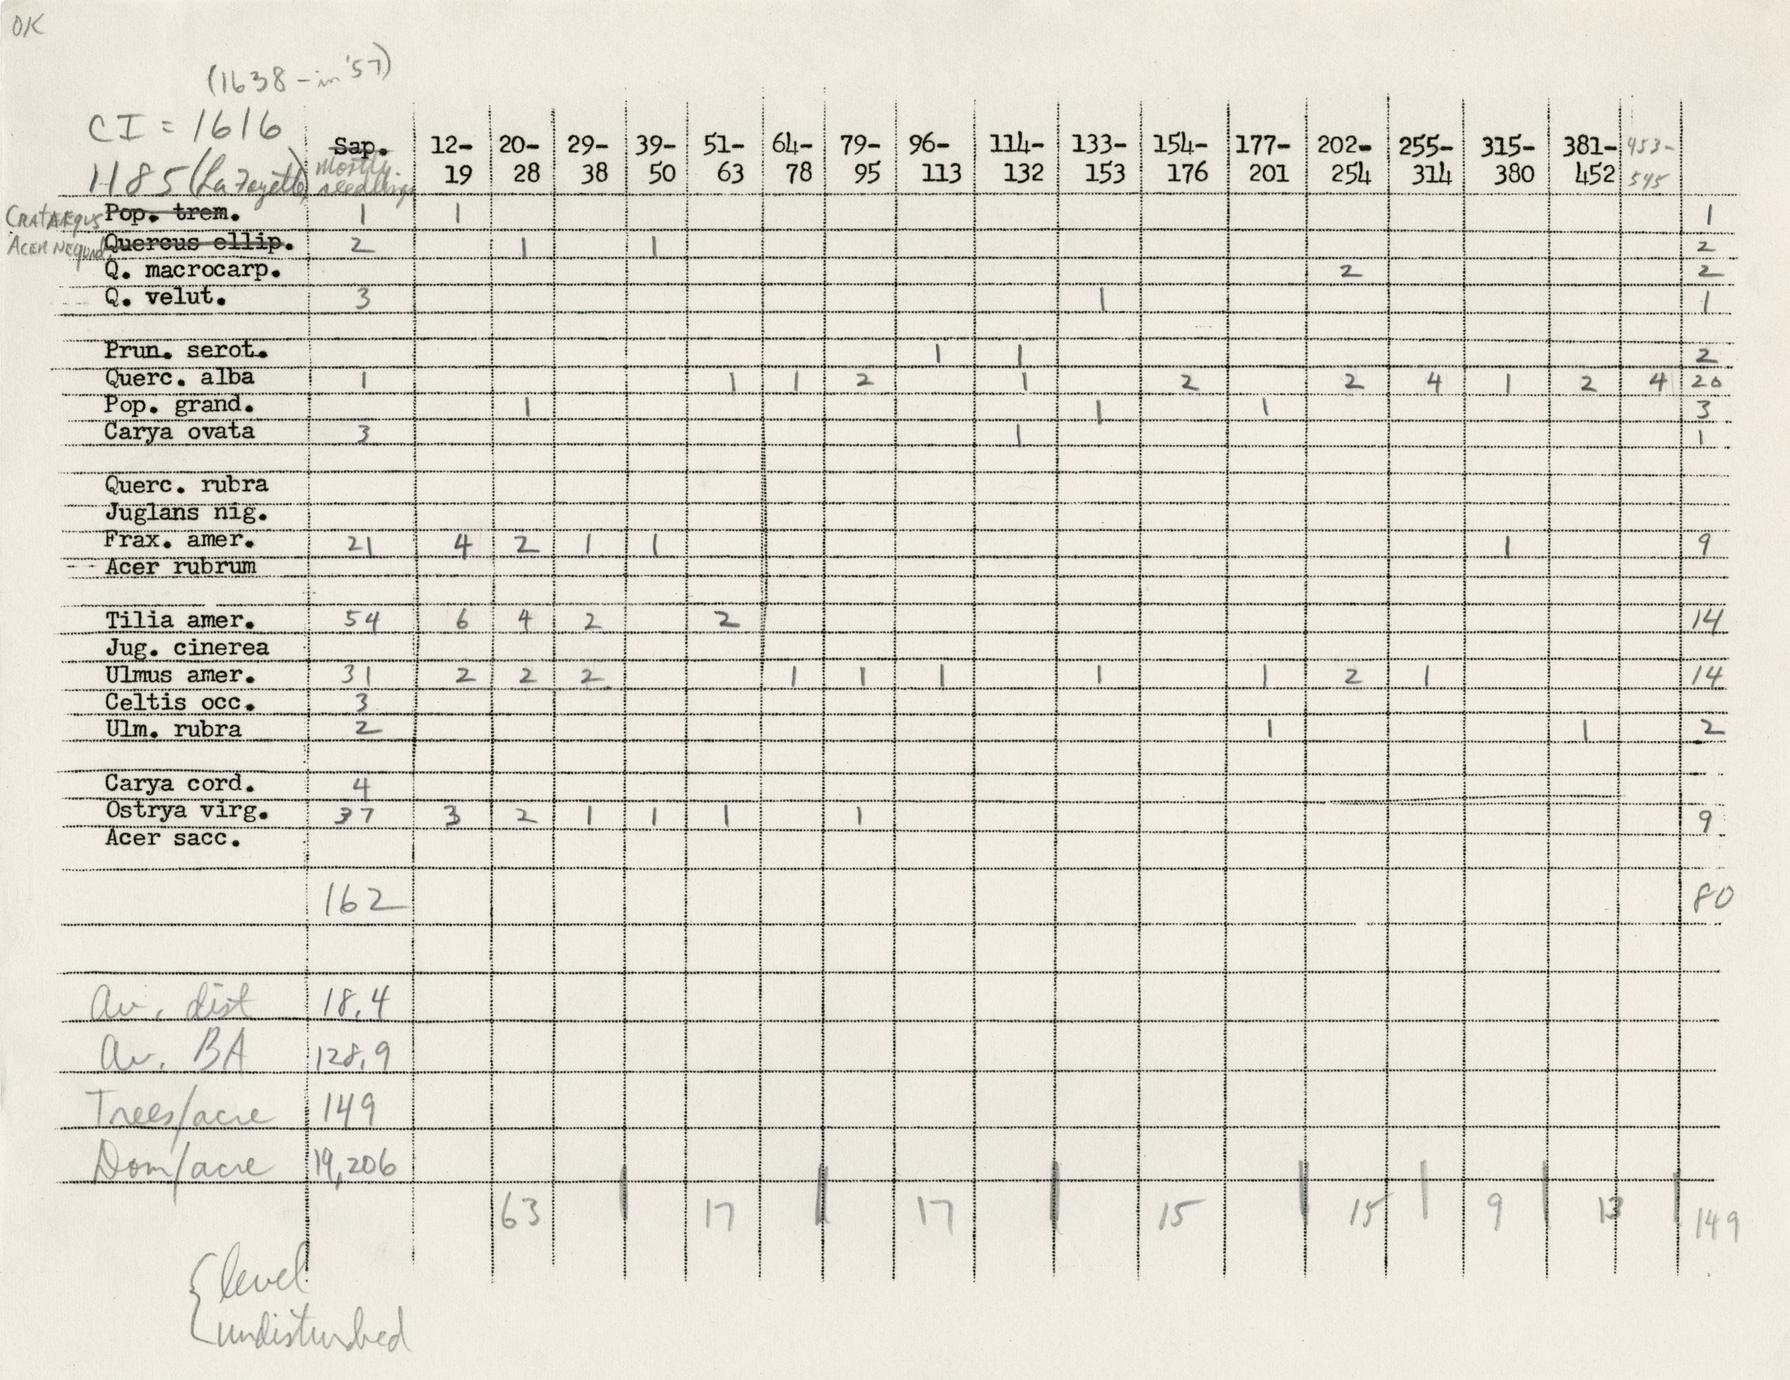 OK
(1638 - in '57)
CI = 1616
1185 (La Fayette) Sap. 12-19 20-28 29-38 39-50 51-63 64-78 79-95 96-113 114-132 133-153 154-176 177-201 202-254 255-314 315-380 381-452 453-545
Mostly seedlings
CRATAEGUS Pop. trem. 1 1 1
ACER NEGUNDO Quercus ellip. 2 1 1 2
Q. macrocarp. 2 2
Q. velut. 3 1 1
Prun. serot. 1 1 2
Querc. alba 1 1 1 2 1 2 2 4 1 2 4 20
Pop. grand. 1 1 1 3
Carya ovata 3 1 1
Querc. rubra
Juglans nig.
Frax. amer. 21 4 2 1 1 1 9
Acer rubrum
Tilia amer. 54 6 4 2 2 14
Jug. cinerea
Ulmus amer. 31 2 2 2 1 1 1 1 1 2 1 14
Celtis occ. 3
Ulm. rubra 2 1 1 2
Carya cord. 4
Ostrya virg. 37 3 2 1 1 1 1 9
Acer sacc.
162 80
Av. dist 18.4
Av. BA 128.9
Trees/acre 149
Dom/acre 19,206
63 17 17 15 15 9 13 149
{level
undisturbed